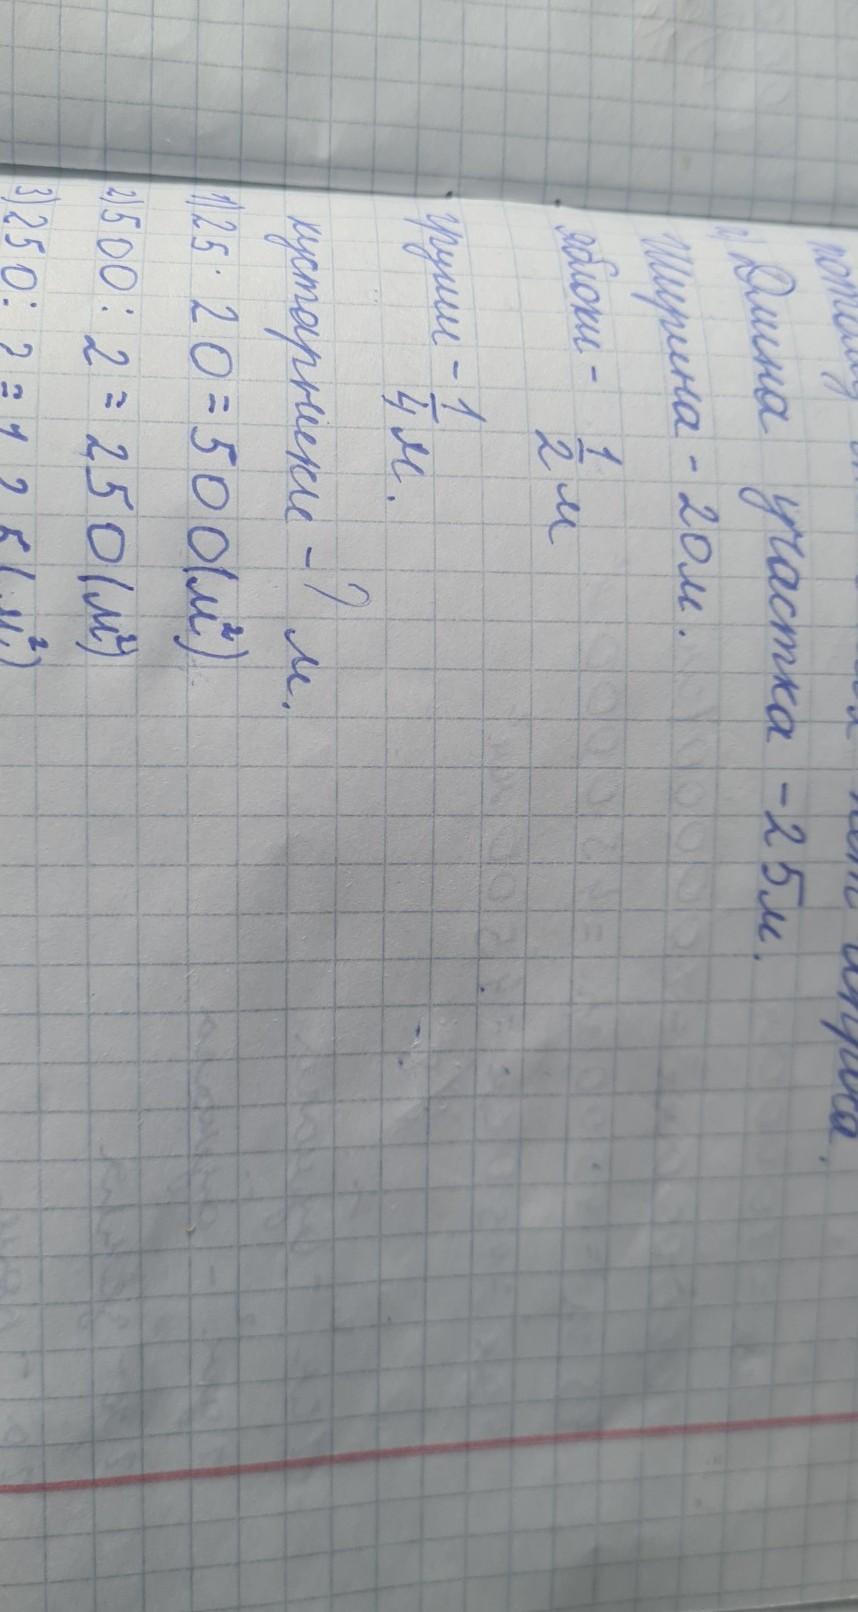 2) Длина участка - 25м.
Ширина - 20м.
яблони - 1/2 м
груши - 1/4 м.
кустарники - ? м.
1) 25 · 20 = 500 (м²)
2) 500 : 2 = 250 (м²)
3) 250 : 2 = 125 (м²)